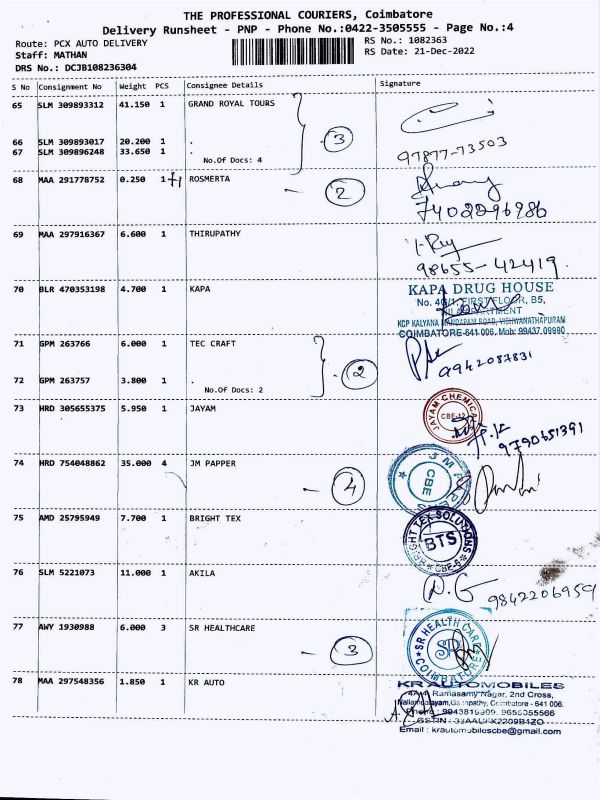 THE PROFESSIONAL COURIERS, Coimbatore
Delivery Runsheet - PNP - Phone No.:0422-3505555 - Page No.:4
Route: PCX AUTO DELIVERY
RS No.: 1082363
Staff: MATHAN
RS Date: 21-Dec-2022
DRS No.: DCJB108236304
S No Consignment No Weight PCS Consignee Details Signature
65 SLM 309893312 41.150 1 GRAND ROYAL TOURS
66 SLM 309893017 20.200 1 .
3
67 SLM 309896248 33.650 1 .
97877-73503
No.Of Docs: 4
68 MAA 291778752 0.250 1 +1 ROSMERTA - 2
7402296986
69 MAA 297916367 6.600 1 THIRUPATHY
98655-42419.
70 BLR 470353198 4.700 1 KAPA
KAPA DRUG HOUSE
FIRST FLOOR, B5,
KCP KALYANA MANDAPAM ROAD, VISHWANATHAPURAM
COIMBATORE-641 006, Mob: 99437 09990
71 GPM 263766 6.000 1 TEC CRAFT
- 2
9942037831
72 GPM 263757 3.800 1 .
No.Of Docs: 2
73 HRD 305655375 5.950 1 JAYAM
JAYAM CHEMICAL
CBE-12
9790651391
74 HRD 754048862 35.000 4 JM PAPPER
- 4
CBE
75 AMD 25795949 7.700 1 BRIGHT TEX
BRIGHT TEX SOLUTIONS
BTS
CBE-6
76 SLM 5221073 11.000 1 AKILA
9842206959
77 AWY 1930988 6.000 3 SR HEALTHCARE
- 3
SR HEALTH CARE
SR
COIMBATORE
78 MAA 297548356 1.850 1 KR AUTO
KR AUTOMOBILES
Ramasamy Nagar, 2nd Cross,
Nallampalayam, Ganapathy, Coimbatore - 641 006.
Email : krautomobilescbe@gmail.com